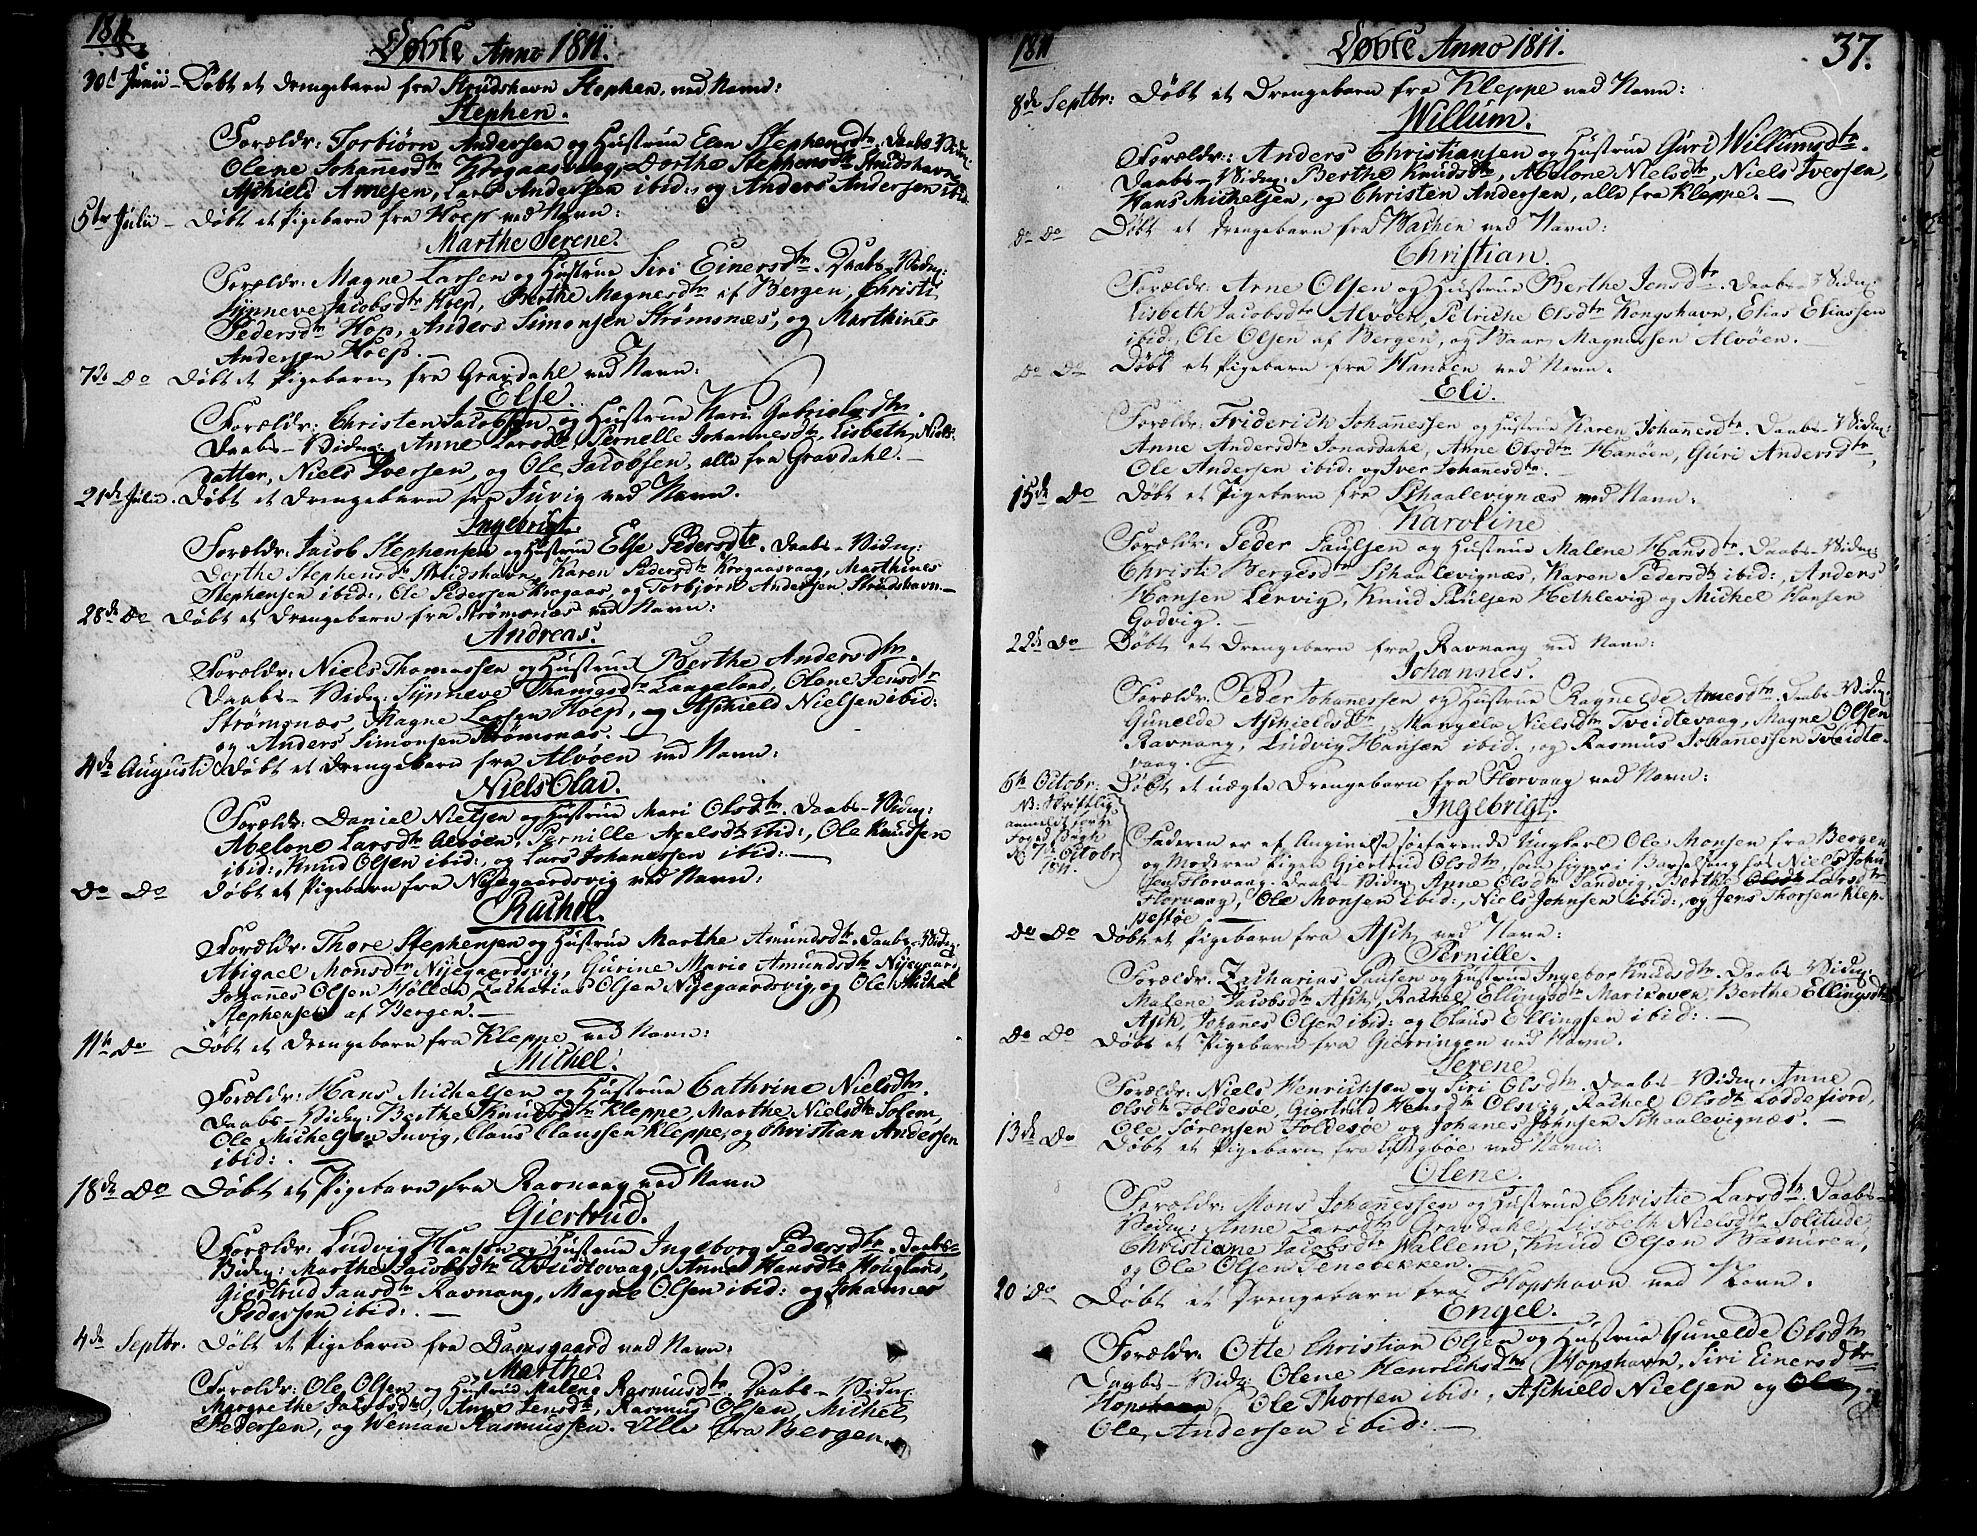 1811
Døbte Anno 1811.
30t Junii – Døbt et Drengebarn fra Strudshavn Stephen, ved Navn:
Stephen.
Forældr: Torbiørn Andersen og Hustrue Elen Stephensdtr. Daabs-Vidn:
Olene Johannesdtr Krogaasvaag, Dorthe Stephensdtr Strudshavn
Aschield Arnesen, Lars Andersen ibid:, og Anders Andersen ibid:
5te Julii – Døbt et Pigebarn fra Hoep ved Navn:
Marthe Serene.
Forældr: Magne Larsen og Hustrue Siri Einersdtr. Daabs-Vidn:
Synneve Jacobsdtr Hoep, Berthe Magnesdtr af Bergen, Christi
Pedersdtr Hop, Anders Simonsen Strømsnæs, og Marthines
Andersen Hoep. –
7de Do Døbt et Pigebarn fra Gravdahl ved Navn:
Else.
Forældr: Christen Jacobsen og Hustrue Kari Gabrielsdtr.
Daabs-Vidn: Anne Larsdtr, Pernelle Johannesdtr, Lisbeth Niels-
datter, Niels Iversen, og Ole Jacobsen, alle fra Gravdahl. –
21de Julii. Døbt et Drengebarn fra Juvig ved Navn.
Ingebrigt.
Forældr: Jacob Stephensen og Hustrue Else Pedersdtr. Daabs-Vidn:
Dorthe Stephensdtr Strudshavn, Karen Pedersdtr Krogaasvaag, Marthinus
Stephensen ibid:, Ole Pedersen Krogaas, og Torbjørn Andersen Strudshavn. –
28de Do Døbt et Drengebarn fra Strømsnæs ved Navn:
Andreas.
Forældr: Niels Thomassen og Hustrue Berthe Andersdtr.
Daabs-Vidn: Synneve Thomasdtr Langeland, Olene Jensdtr
Strømsnæs, Magne Larsen Hoep, og Aschield Nielsen ibid:
og Anders Simonsen Strømsnæs. –
4de Augusti Døbt et Drengebarn fra Alvøen ved Navn:
Niels Olai.
Forældr: Daniel Nielsen og Hustrue Mari Olsdtr. Daabs-Vidn:
Abelone Larsdtr Alvøen, Pernille Axelsdtr ibid:, Ole Knudsen
ibid:, Knud Olsen ibid:, og Lars Johanessen ibid: –
Do Do Døbt et Pigebarn fra Nyegaardsvig ved Navn:
Rachel.
Forældr: Thore Stephensen og Hustrue Marthe Amundsdtr. Daabs-Vidn:
Abigael Monsdtr Nyegaardsvig, Gurine Marie Amundsdtr Nyegaard,
Johannes Olsen Høllen, Zacharias Olsen Nyegaardsvig, og Ole Michel
Stephensen af Bergen. –
11te Do Døbt et Drengebarn fra Kleppe ved Navn:
Michel.
Forældr: Hans Michelsen og Hustrue Cathrine Nielsdtr.
Daabs-Vidn: Berthe Knudsdtr Kleppe, Marthe Nielsdtr Solem,
Ole Michelsen Juvig, Claus Claussen Kleppe, og Christian Andersen
ibid: –
18de Do Døbt et Pigebarn fra Ravnang ved Navn
Giertrud.
Forældr: Ludvig Hansen og Hustrue Ingeborg Pedersdtr. Daabs-
Vidn: Marthe Jacobsdtr Tveidtevaag, Anna Hansdtr Hougland,
Giertrud Jansdtr Ravnang, Magne Olsen ibid: og Johannes
Pedersen ibid: –
4de Septbr. Døbt et Pigebarn fra Damsgaard ved Navn:
Marthe.
Forældr: Ole Olsen og Hustrue Malene Rasmusdtr. Daabs-Vidn:
Margrethe Jacobsdtr, Anne Jensdtr, Rasmus Olsen, Michel
Pedersen, og Weman Rasmussen. Alle fra Bergen.
1811
Døbte Anno 1811.
37.
8de Septbr: Døbt et Drengebarn fra Kleppe ved Navn:
Willum.
Forældr: Anders Christiansen og Hustrue Guri Willumsdtr.
Daabs-Vidn: Berthe Knudsdtr, Abelone Nielsdtr, Niels Iversen,
Hans Michelsen, og Christen Andersen, alle fra Kleppe. –
Do Do Døbt et Drengebarn fra Bachen ved Navn:
Christian.
Forældr: Arne Olsen og Hustrue Berthe Jensdtr. Daabs-Vidn:
Lisbeth Jacobsdtr Alvøen, Petriche Olsdtr Kongshavn, Elias Eliassen
ibid:, Ole Olsen af Bergen, og Baar Magnussen Alvøen. –
Do Do Døbt et Pigebarn fra Hanøen ved Navn:
Eli.
Forældr: Friderich Johanessen og Hustrue Karen Johannesdtr. Daabs-Vidn:
Anne Andersdtr Jonasdahl, Anne Olsdtr Hanøen, Guri Andersdtr,
Ole Andersen ibid: og Iver Johanesdtr. –
15de Do Døbt et Pigebarn fra Schaalevignæs ved Navn:
Karoline
Forældr: Peder Paulsen og Hustrue Malene Hansdtr. Daabs-Vidn:
Christi Bergesdtr Schaalevignæs, Karen Pedersdtr ibid:, Anders
Hansen Lervig, Knud Paulsen Hethlevig og Michel Hansen
Godvig. –
22de Do Døbt et Drengebarn fra Ravnang ved Navn:
Johannes.
Forældr: Peder Johannessen og Hustrue Ragnelde Arnesdtr. Daabs-Vidn:
Gunelde Aschieldsdtr, Mangela Nielsdtr Tveidtevaag, Magne Olsen
Ravnang, Ludvig Hansen ibid:, og Rasmus Johannessen Tveidte-
vaag. –
6te Octobr: Døbt et uægte Drengebarn fra Florvaag ved Navn:
NB: Skriftlig
anmeldt
Foged
d 7de Octobr
1811.
Ingebrigt.
Faderen er en Angivelse søefarende Ungkarl Ole Monsen fra Bergen
og Moderen Pigen Giertrud Olsdtr, som ligger i Barselseng hos Niels John-
sen Florvaag. Daabs-Vidn: Anne Olsdtr Sandvig, Berthe Olsdtr Larsdtr
Florvaag, Ole Monsen ibid:, Niels Johnsen ibid:, og Jens Thorsen Klep-
pestøe. –
Do Do Døbt et Pigebarn fra Ask ved Navn:
Pernille.
Forældr: Zacharias Paulsen og Hustrue Ingebor Knudsdtr. Daabs-Vidn:
Malene Jacobsdtr Ask, Rachel Ellingsdtr Marikoven, Berthe Ellingsdtr
Ask, Johannes Olsen ibid: og Claus Ellingsen ibid: –
Do Do Døbt et Pigebarn fra Gierringen ved Navn.
Serene.
Forældr: Niels Henrichsen og Siri Olsdtr. Daabs-Vidn: Anne
Olsdtr Foldesøe, Giertrud Hansdtr Olsvig, Rachel Olsdtr Loddefiord,
Ole Sørensen Foldesøe og Johanes Johnsen Schaalevignæs. –
13de Do Døbt et Pigebarn fra Lyngbøe ved Navn:
Olene.
Forældr: Mons Johannessen og Hustrue Christie Larsdtr. Daabs-
Vidn: Anne Larsdtr Gravdahl, Lisbeth Nielsdtr Solitude,
Christiane Jacobsdtr Wallem, Knud Olsen Basniren,
og Ole Olsen Tenebekken.
20 Do Døbt et Drengebarn fra Hopshavn ved Navn.
Engel.
Forældr: Otte Christian Olsen og Hustrue Gunelde Olsdtr
Daabs-Vidn: Olene Henrichsdtr Hopshavn, Siri Einersdtr
Hopshavn, Ole Thorsen ibid:, Aschield Nielsen og Ole
Ole, Andersen ibid: –